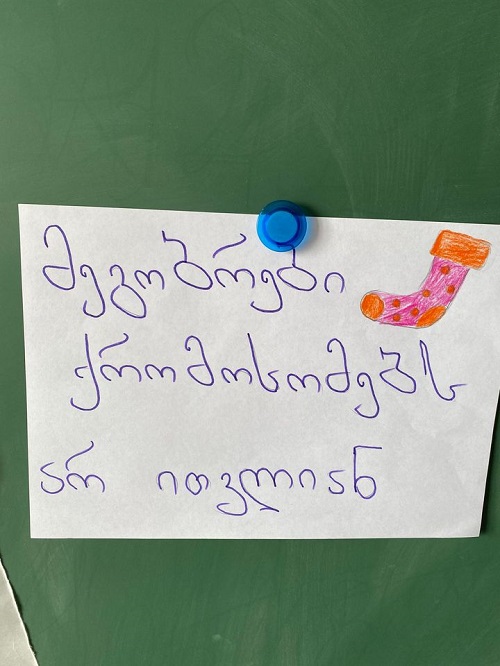 მეგობრები
ქრომოსომებს
არ ითვლიან